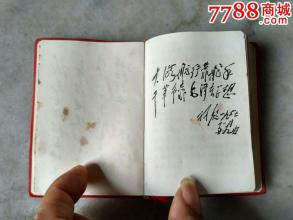 7788商城
大海航行靠舵手
干革命靠毛泽东思想
林彪